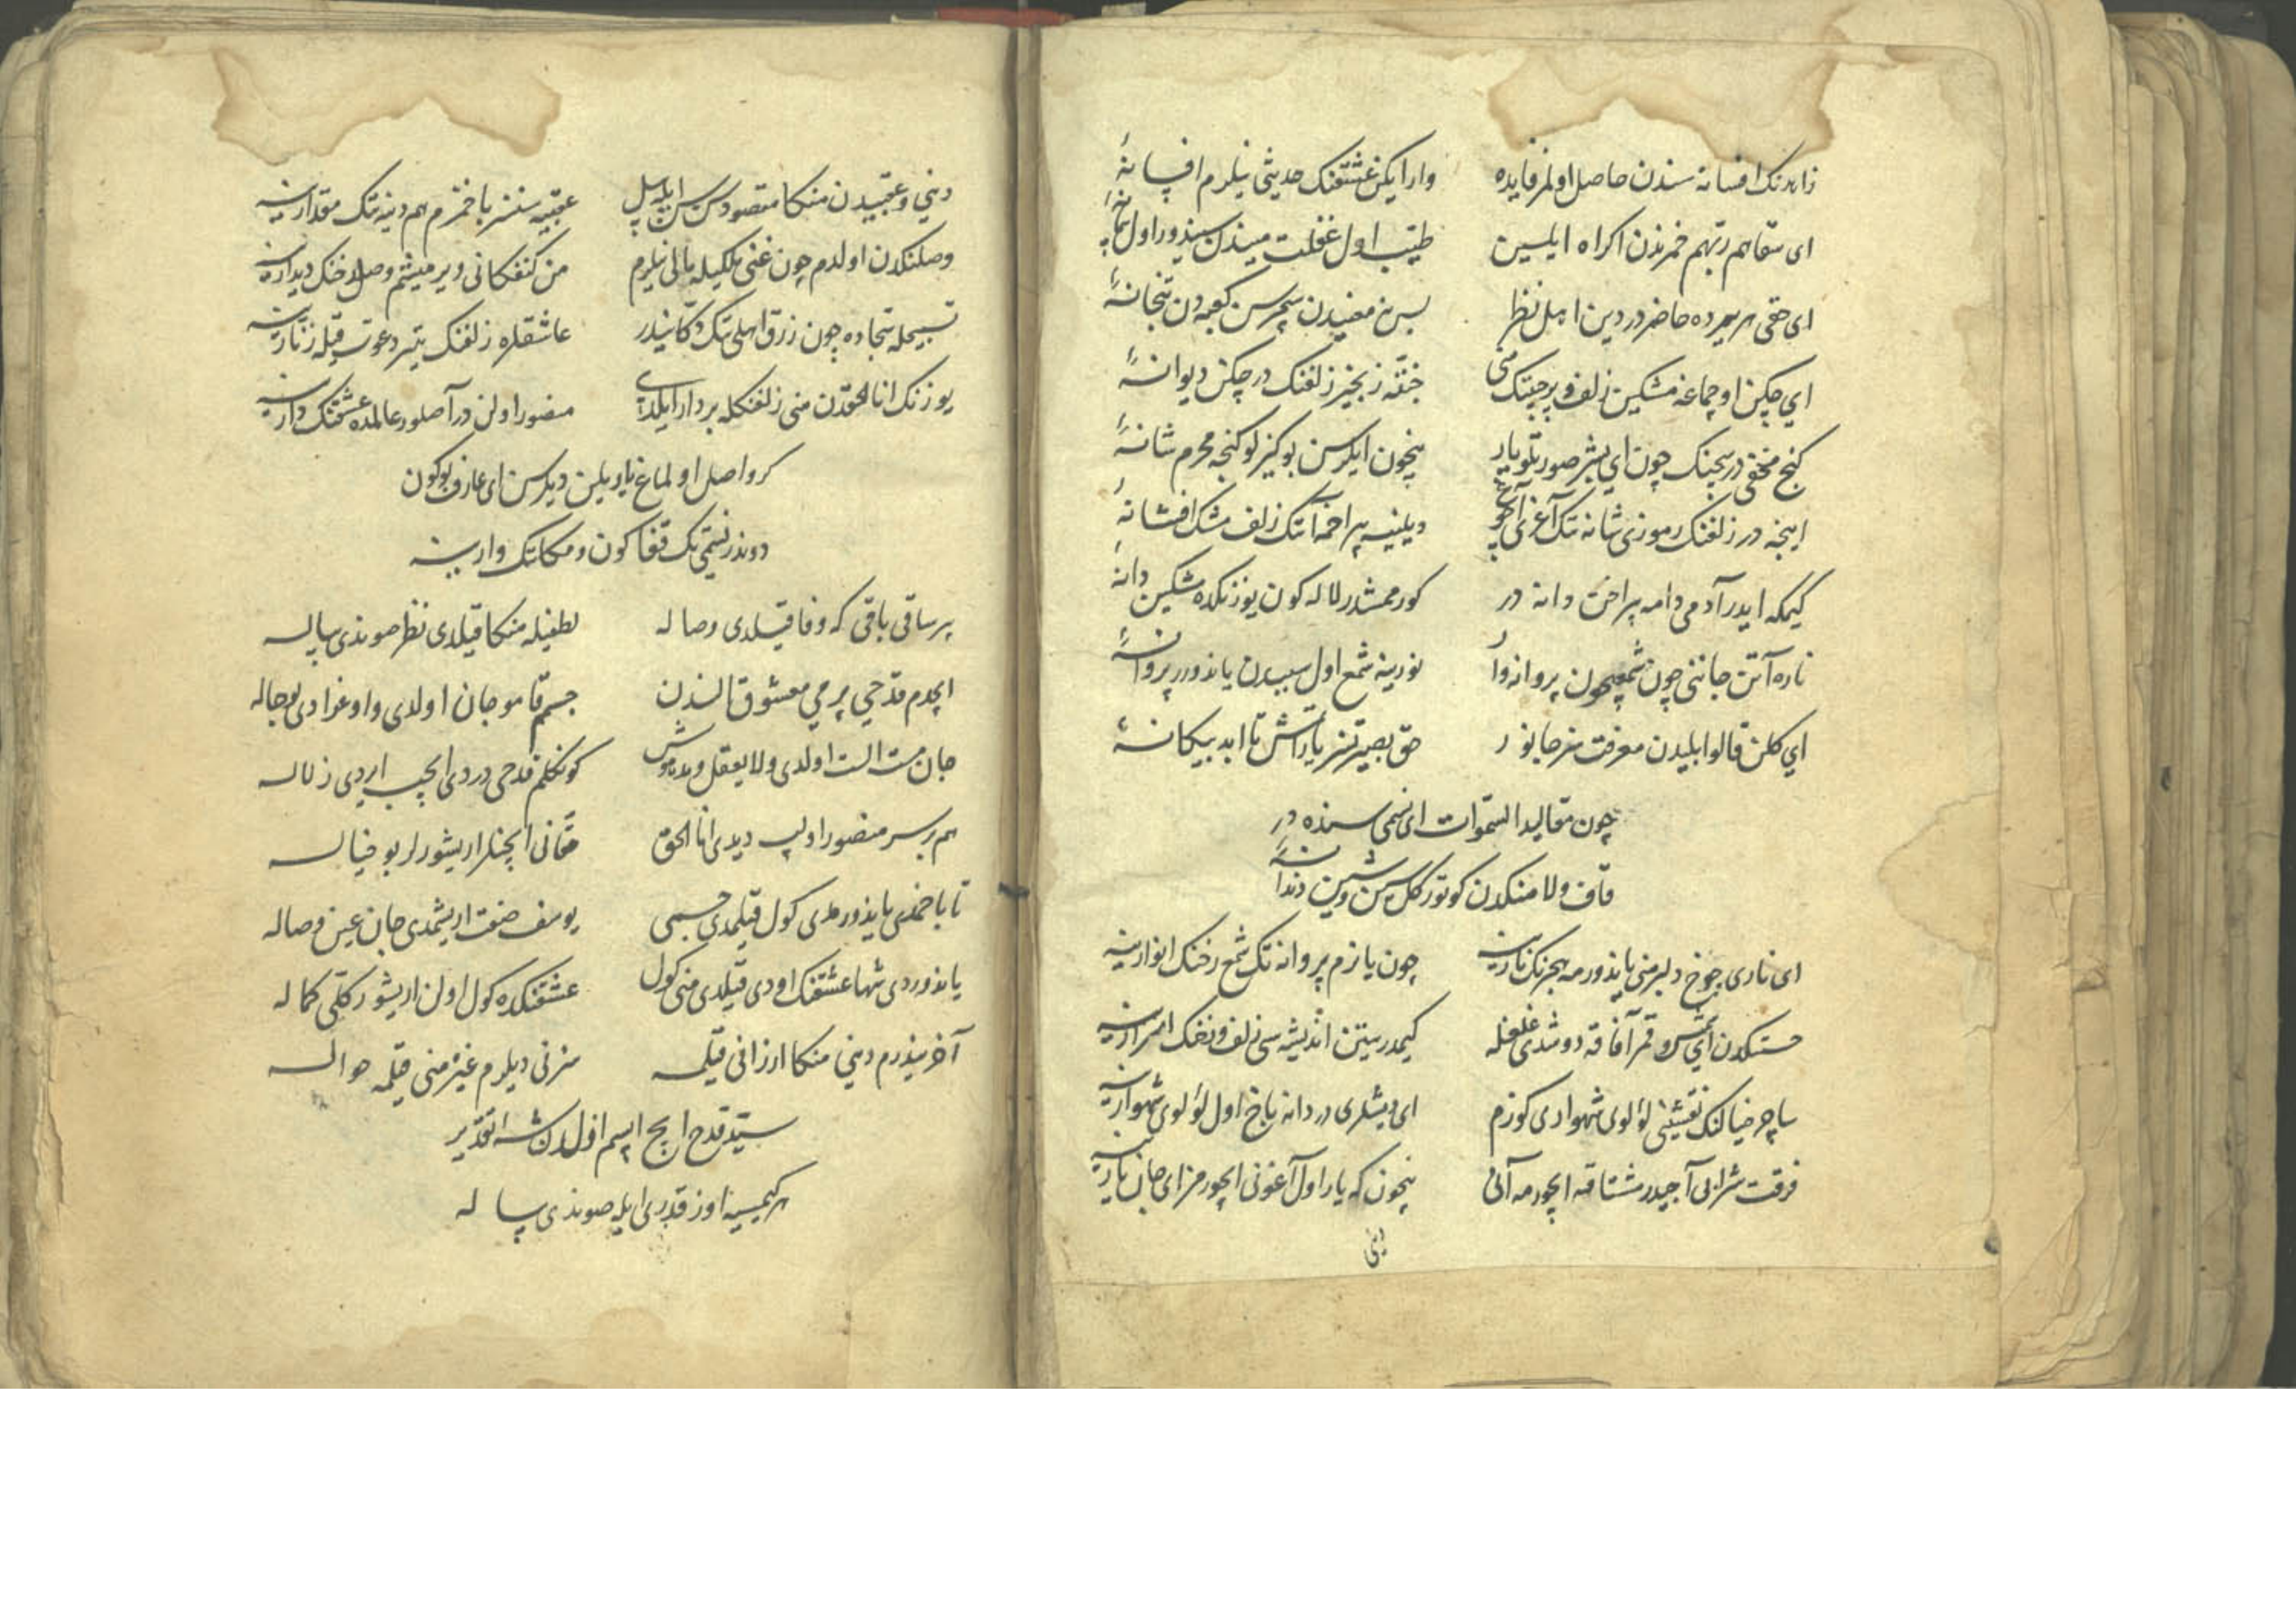 زاهدنک افسانه سندن حاصل اولمز فایده وار ایکن عشقنک حدیثی نیلرم افسانهٔ
ای سقاهم ربهم خمرندن اکراه ایلین طیب اول غفلت میندن سیندور اول
ای حقی هر یرده حاضر در دین اهل نظر بس نه معنیدن سچرسن کعبه دن بتخانهٔ
ای چکن اوچماغه مشکین زلف و پرچینک خقه زنجیر زلفنک در چکن دیوانهٔ
کنج مخفی در سچنک چون ای بشر صورتلو یار نیچون ایلرسن بو کیزلو کنجه محرم شانهٔ
اینجه در زلفنک رموزی شانه تک آغزی دیلینه پیراخمه اتک زلف مشک افشانهٔ
کیمکه ایدر آدمی دامه براخن دانه در کورممشدر لاله کون یوزنکده مشکین دانهٔ
ناره آتن جاننی چون شمعیچون پروانه وار نورینه شمع اول سببدن یاندورر پروانهٔ
ای کلن قالوا بلیدن معرفت سز جانور حق بصیرتسز یاراتمش تا ابد بیکانهٔ
چون مقالید السموات ای نسیمی سنده در
قاف ولا منکدن کوتورکل سین و شین دندانهٔ
ای ناری چوخ دلبر منی یاندورمه هجرنک نارینه چون یانرم پروانه تک شمع رخنک انوارینه
حسنکدن ای شمس و قمر آفاقه دوشدی غلغله کیمدر یتن اندیشه سی زلف و رخنک اسرارینه
ساچر خیالنک نقشینه لؤلوی شهواری کوزم ای دیشلری دردانه باخ اول لؤلوی شهوارینه
فرقت شرابی آجیدر مشتاقه ایچورمه آنی نیچون که یار اول آغونی ایچورمز ای جان یارینه
دنیی
دنیی و عقبیدن منکا مقصود سن سن ایله بیل عقبیه سنسز باخمزم هم دنیه تک مقدارینه
وصلنکدن اولدم چون غنی ملکیله مالی نیلرم من کنفکانی ویرمیشم وصل رخنک دیدارینه
تسبیحله سجاده چون زرق اهلی تک دکانیدر عاشقلره زلفنک یتر دعوت قیله زنارینه
یوزنک انا الحقدن منی زلفنکله بردار ایلدی منصور اولن در آصلور عالمده عشقنک دارینه
کر واصل اولماغ یاریلن دیلرسن ای عارف بوکون
دوندر نسیمی تک قفا کون و مکانک وارینه
بر ساقی باقی که وفا قیلدی وصاله لطفیله منکا قیلدی نظر صوندی پیاله
ایچدم قدحی پر می معشوق النندن جسمم قامو جان اولدی و اوغرادی بو حاله
جان مست الست اولدی و لا یعقل و مدهوش کونکلم قدحی دردی ایچیب اردی زلاله
هم بر سر منصور اولب دیدی انا الحق مقانی ایچنلر اریشورلر بو خیاله
تا باخمدی یاندورمدی کول قیلمدی جسمی یوسف صفت اریشمدی جان عین وصاله
یاندوردی شها عشقنک اودی قیلدی منی کول عشقنکده کول اولن اریشور کلی کماله
آخر نیدرم دنیی منکا ارزانی قیلمه سزنی دیلرم غیره منی قیلمه حواله
سید قدح ایچ ازلدن شه تقدیر
هر کیمسیه اوز قدری ایله صوندی پیاله